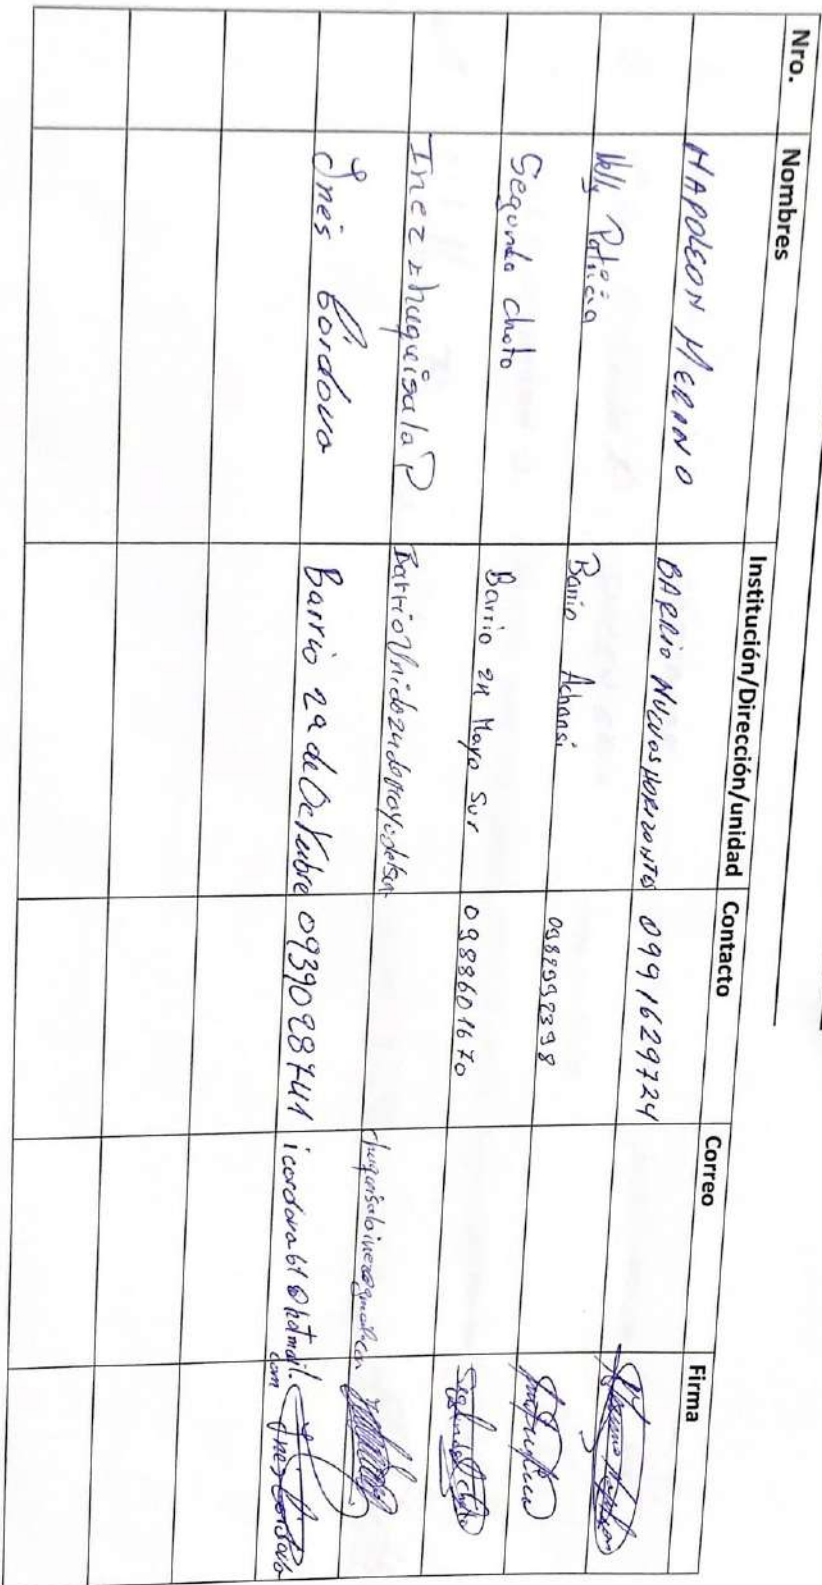 Nro. Nombres Institución/Dirección/unidad Contacto Correo Firma
NAPOLEON MERINO BARRIO NUEVOS HORIZONTES 0991629724
Nelly Patricia Barrio Achansi 0982992398
Segundo Choto Barrio 24 Mayo Sur 0988601670
Inez Chuquisala P
Inés Córdova Barrio 29 de Octubre 0939028741 icordova61@hotmail.
com Inés Córdova